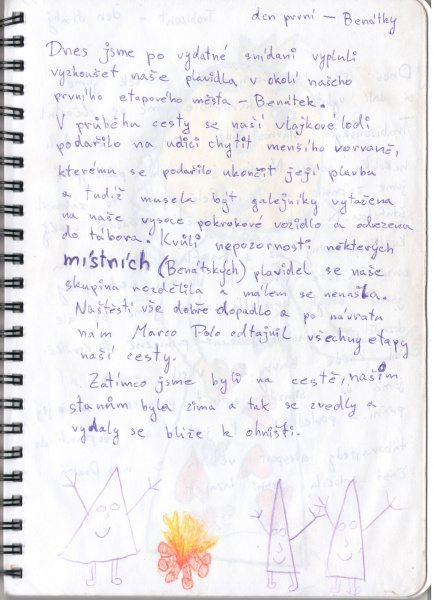 den první – Benátky
Dnes jsme po vydatné snídani vypluli
vyzkoušet naše plavidla v okolí našeho
prvního etapového města – Benátek.
V průběhu cesty se naší vlajkové lodi
podařilo na udici chytit menšího vorvaně,
kterému se podařilo ukončit její plavbu
a tudíž musela být galejníky vytažena
na naše vysoce pokrokové vozidlo a odvezena
do tábora. Kvůli nepozornosti některých
místních (Benátských) plavidel se naše
skupina rozdělila a málem se nenašla.
Naštěstí vše dobře dopadlo a po návratu
nám Marco Polo odtajnil všechny etapy
naší cesty.
Zatímco jsme byli na cestě, našim
stanům byla zima a tak se zvedly a
vydaly se blíže k ohništi.